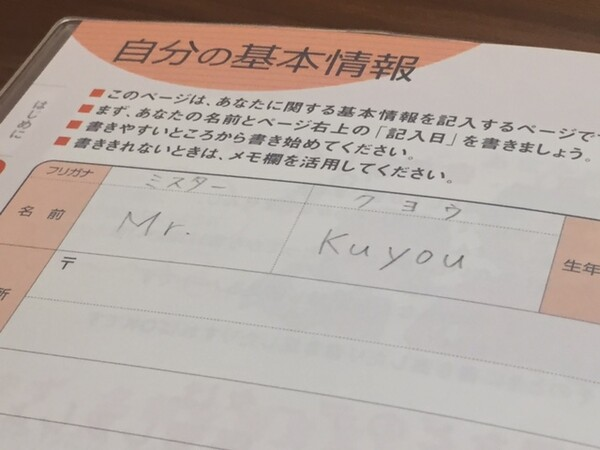 自分の基本情報
■このページは、あなたに関する基本情報を記入するページで
■まず、あなたの名前とページ右上の「記入日」を書きましょう。
■書きやすいところから書き始めてください。
■書ききれないときは、メモ欄を活用してください。
はじめに
フリガナ ミスター クヨウ
名前 Mr. Kuyou
生年
〒
所